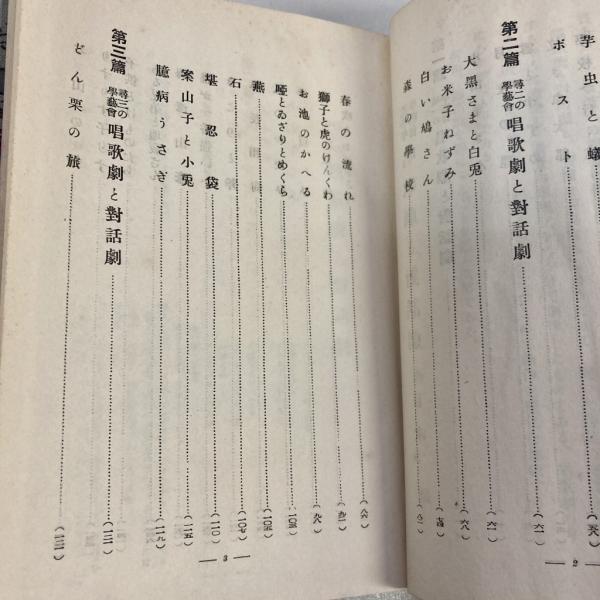 芋虫と蟻
ポスト……(五八)
第二篇 尋二の學藝會 唱歌劇と對話劇……(六一)
大黒さまと白兎……(六一)
お米子ねずみ……(六八)
白い鳩さん……
森の學校……(八一)
— 2 —
春の流れ……(八六)
獅子と虎のけんくわ……(九一)
お池のかへる……(九八)
啞とゐざりとめくら……
燕……(一〇五)
石……(一〇七)
堪忍袋……(一一〇)
案山子と小兎……(一一五)
臆病うさぎ……(一一九)
第三篇 尋三の學藝會 唱歌劇と對話劇……
どん栗の旅……
— 3 —